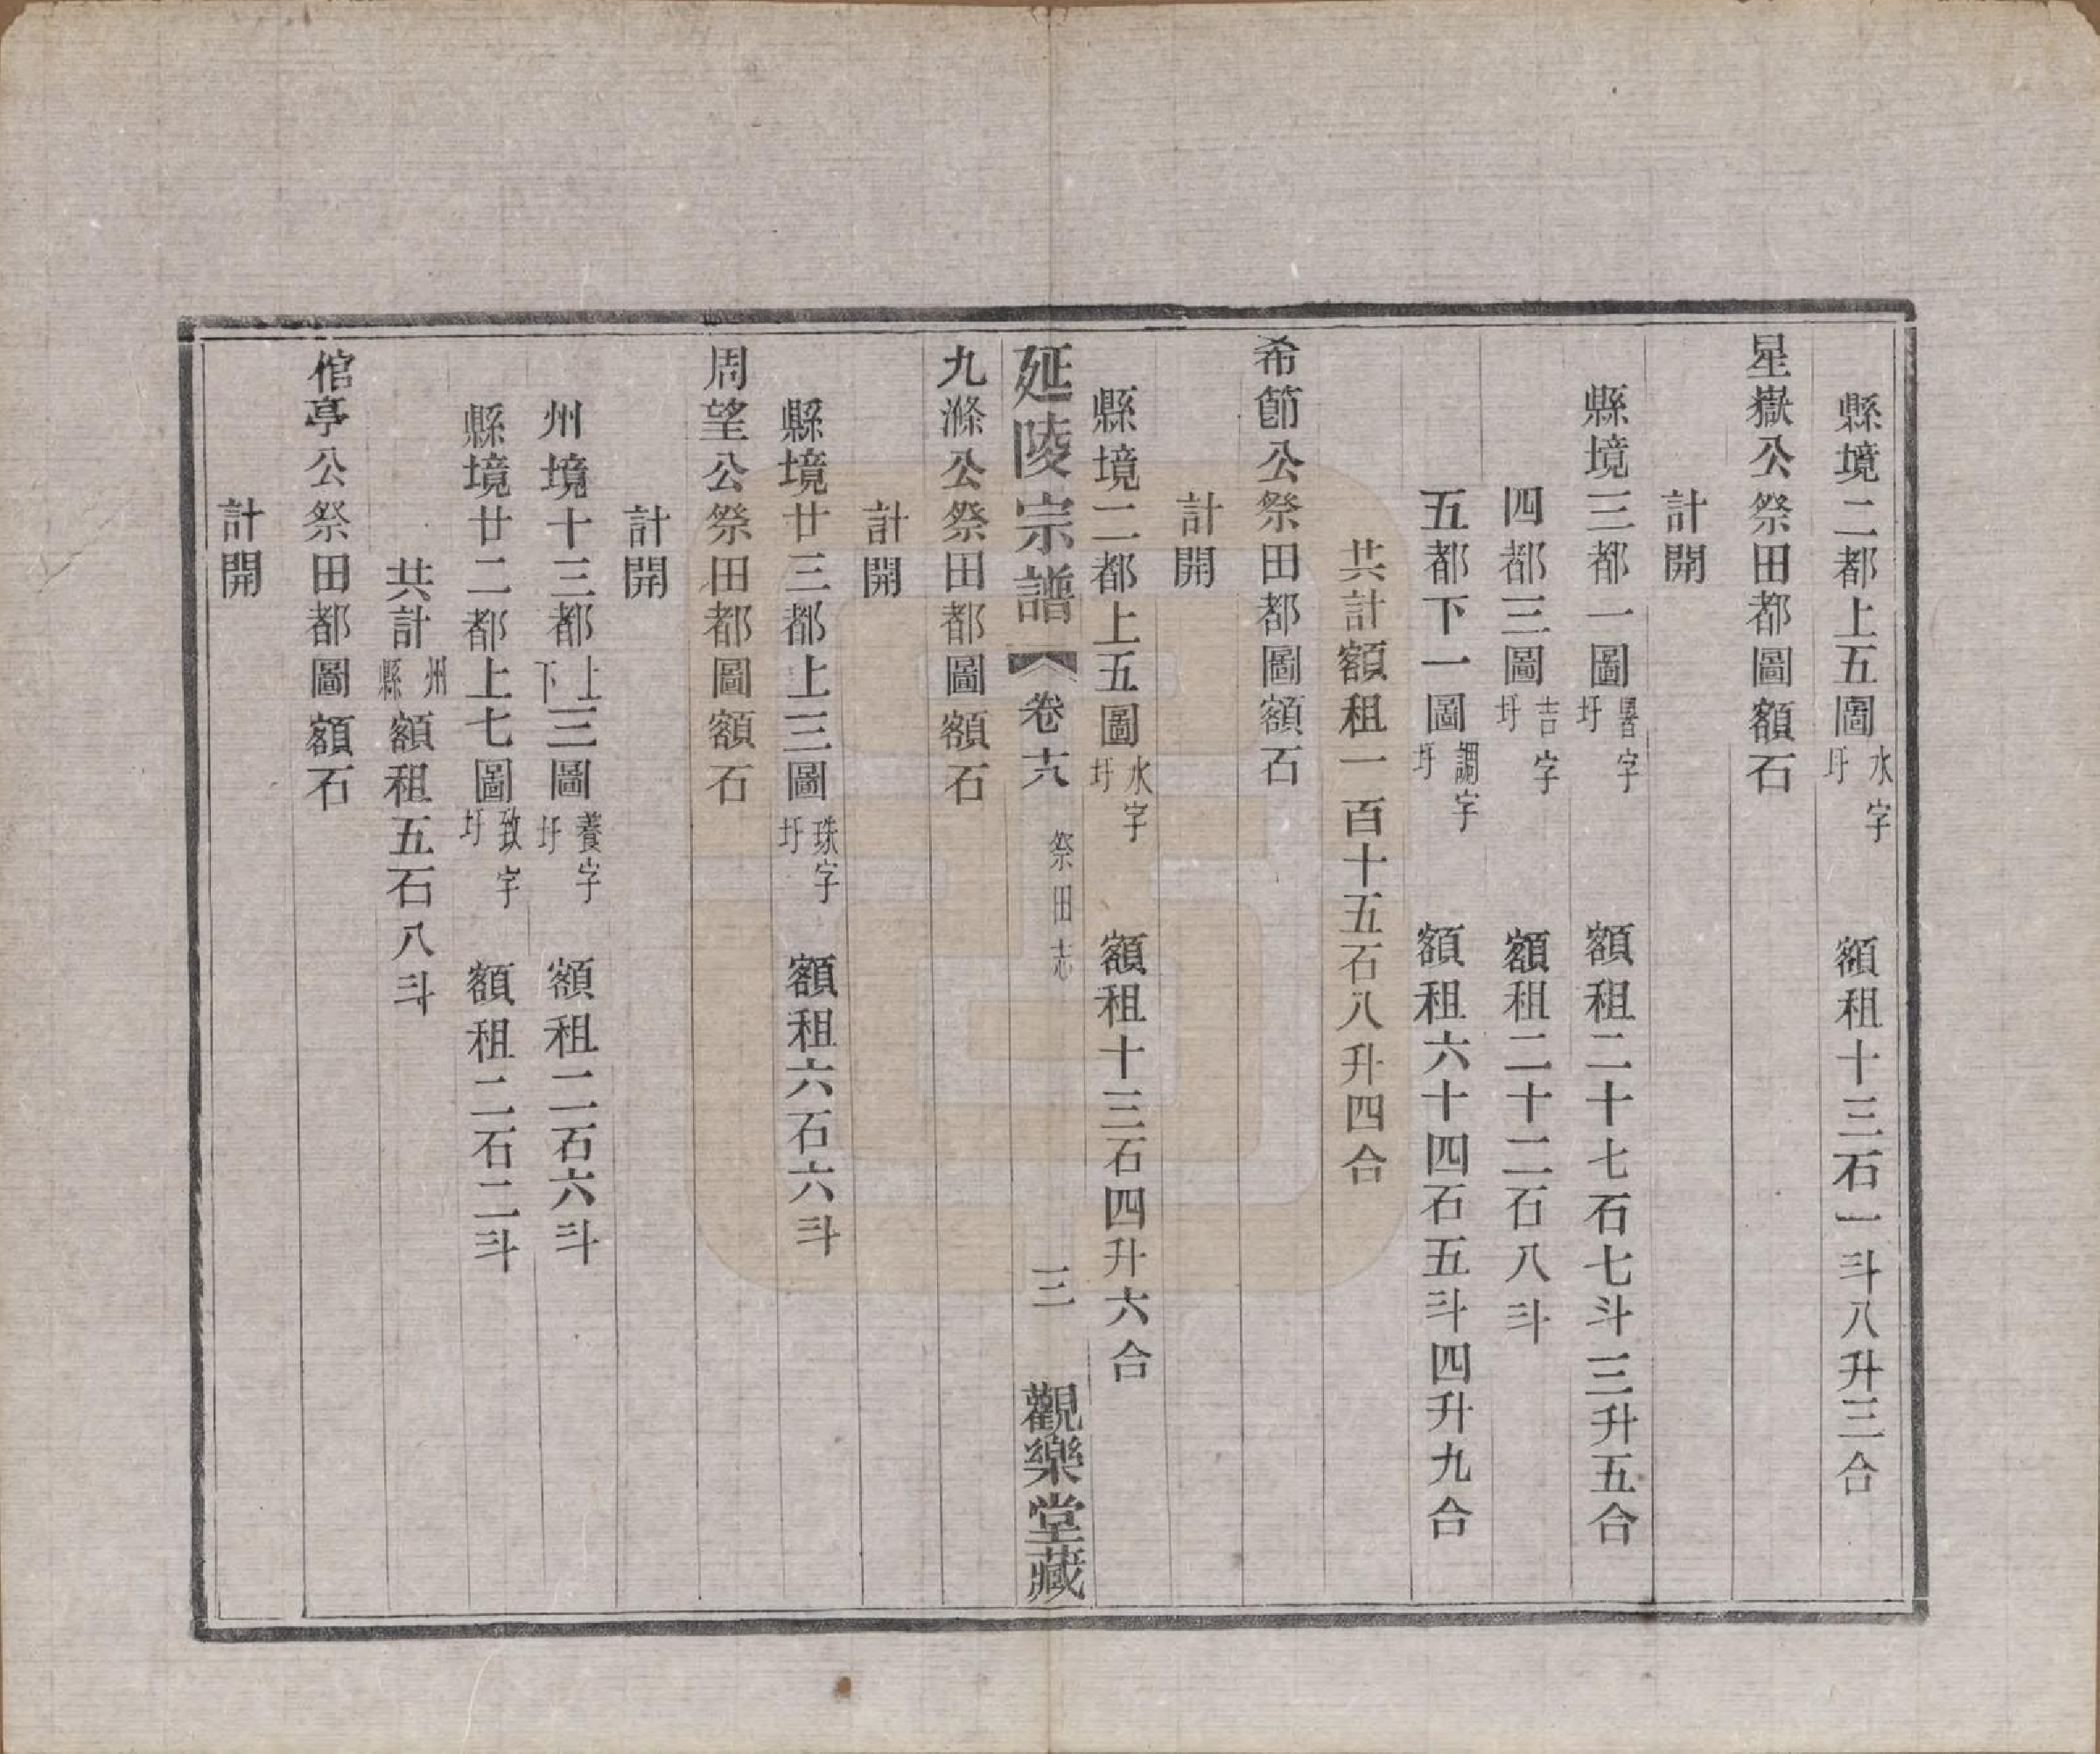 縣境二都上五圖水字圩　額租十三石一斗八升三合
星嶽公祭田都圖額石
計開
縣境三都一圖暑字圩　額租二十七石七斗三升五合
四都三圖吉字圩　額租二十二石八斗
五都下一圖調字圩　額租六十四石五斗四升九合
共計額租一百十五石八升四合
希節公祭田都圖額石
計開
縣境二都上五圖水字圩　額租十三石四升六合
延陵宗譜　卷十八　祭田志　三　觀樂堂藏
九滌公祭田都圖額石
計開
縣境廿三都上三圖珠字圩　額租六石六斗
周望公祭田都圖額石
計開
州境十三都上下三圖養字圩　額租二石六斗
縣境廿二都上七圖致字圩　額租二石二斗
共計州縣額租五石八斗
倌亭公祭田都圖額石
計開